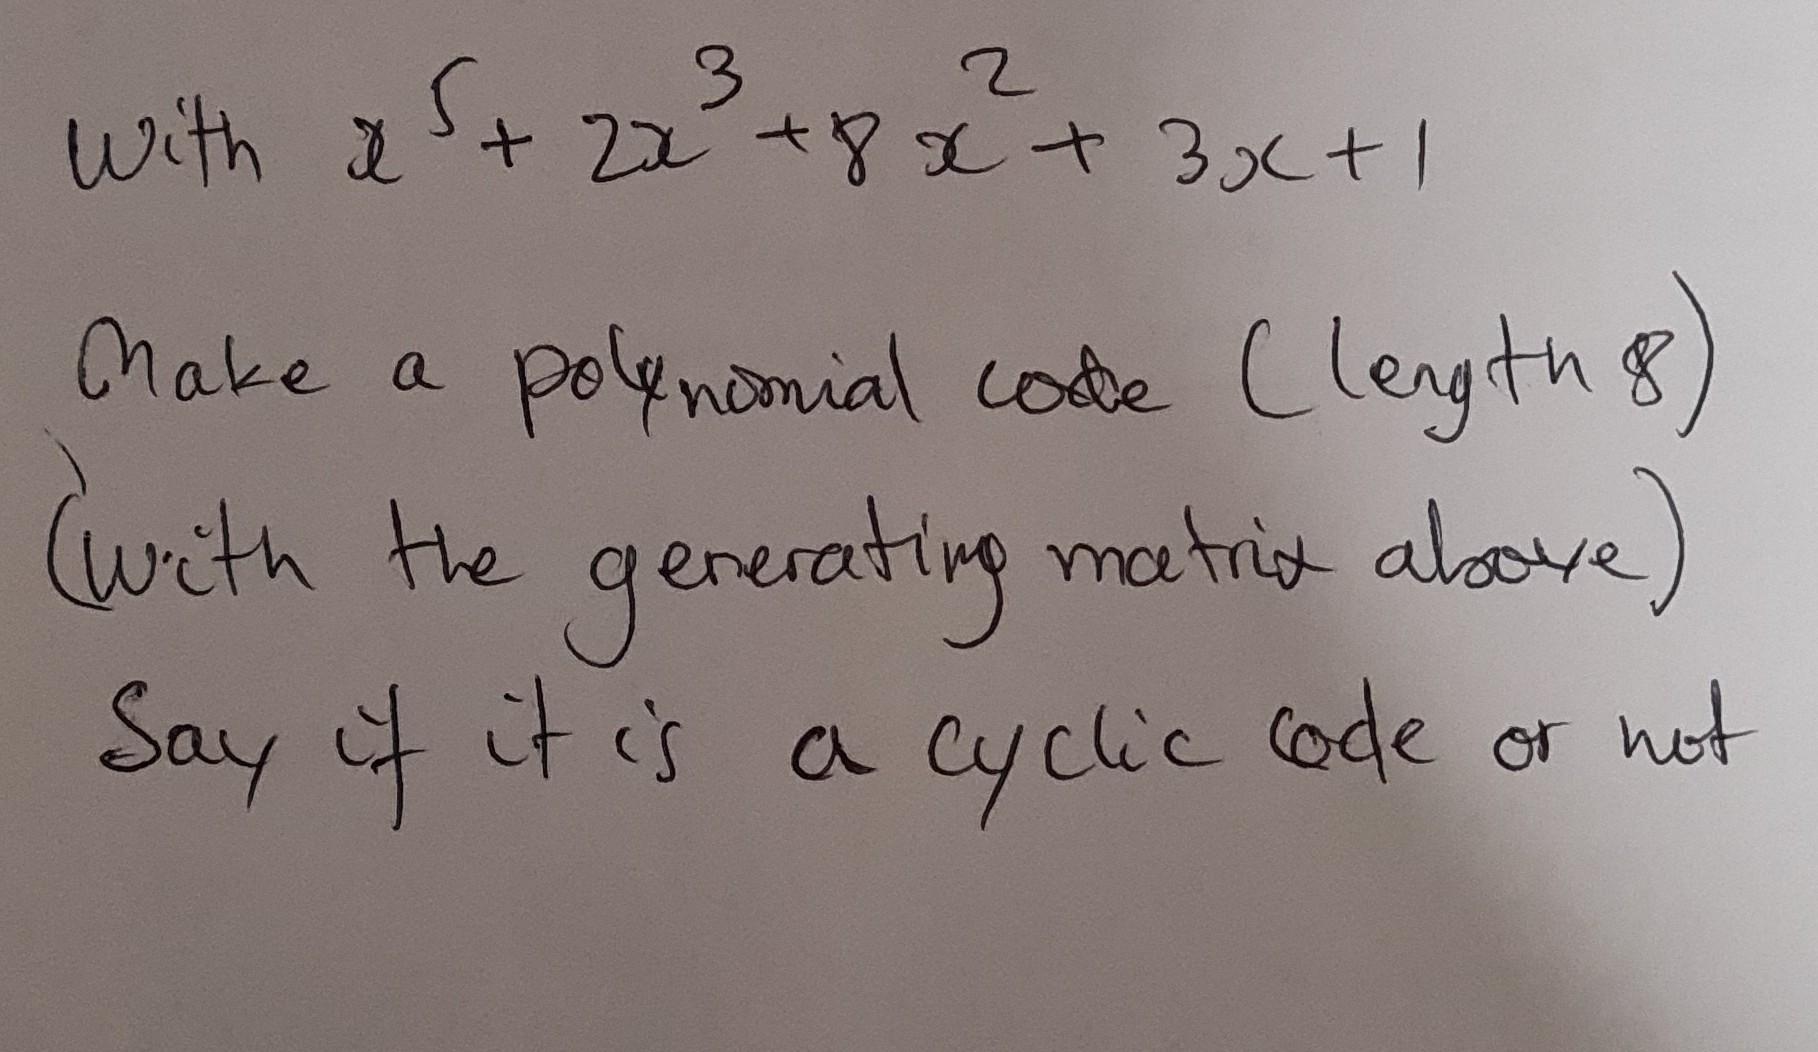 With x⁵ + 2x³ + 8x² + 3x + 1
Make a polynomial code (length 8)
(with the generating matrix above)
Say if it is a cyclic code or not